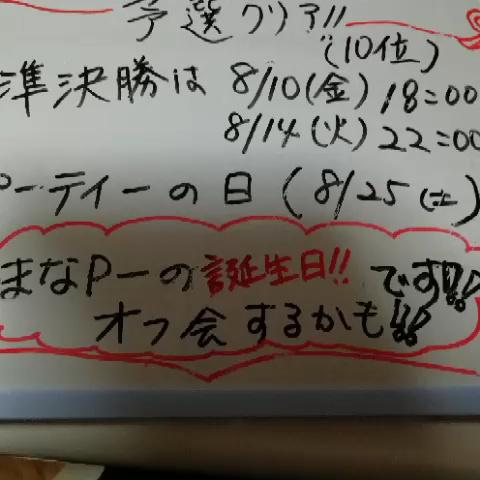 予選クリア!!
(10位)
準決勝は 8/10(金) 18:00
8/14(火) 22:00
パーティーの日 (8/25(土)
まなPーの誕生日!! です!!
オフ会するかも!!